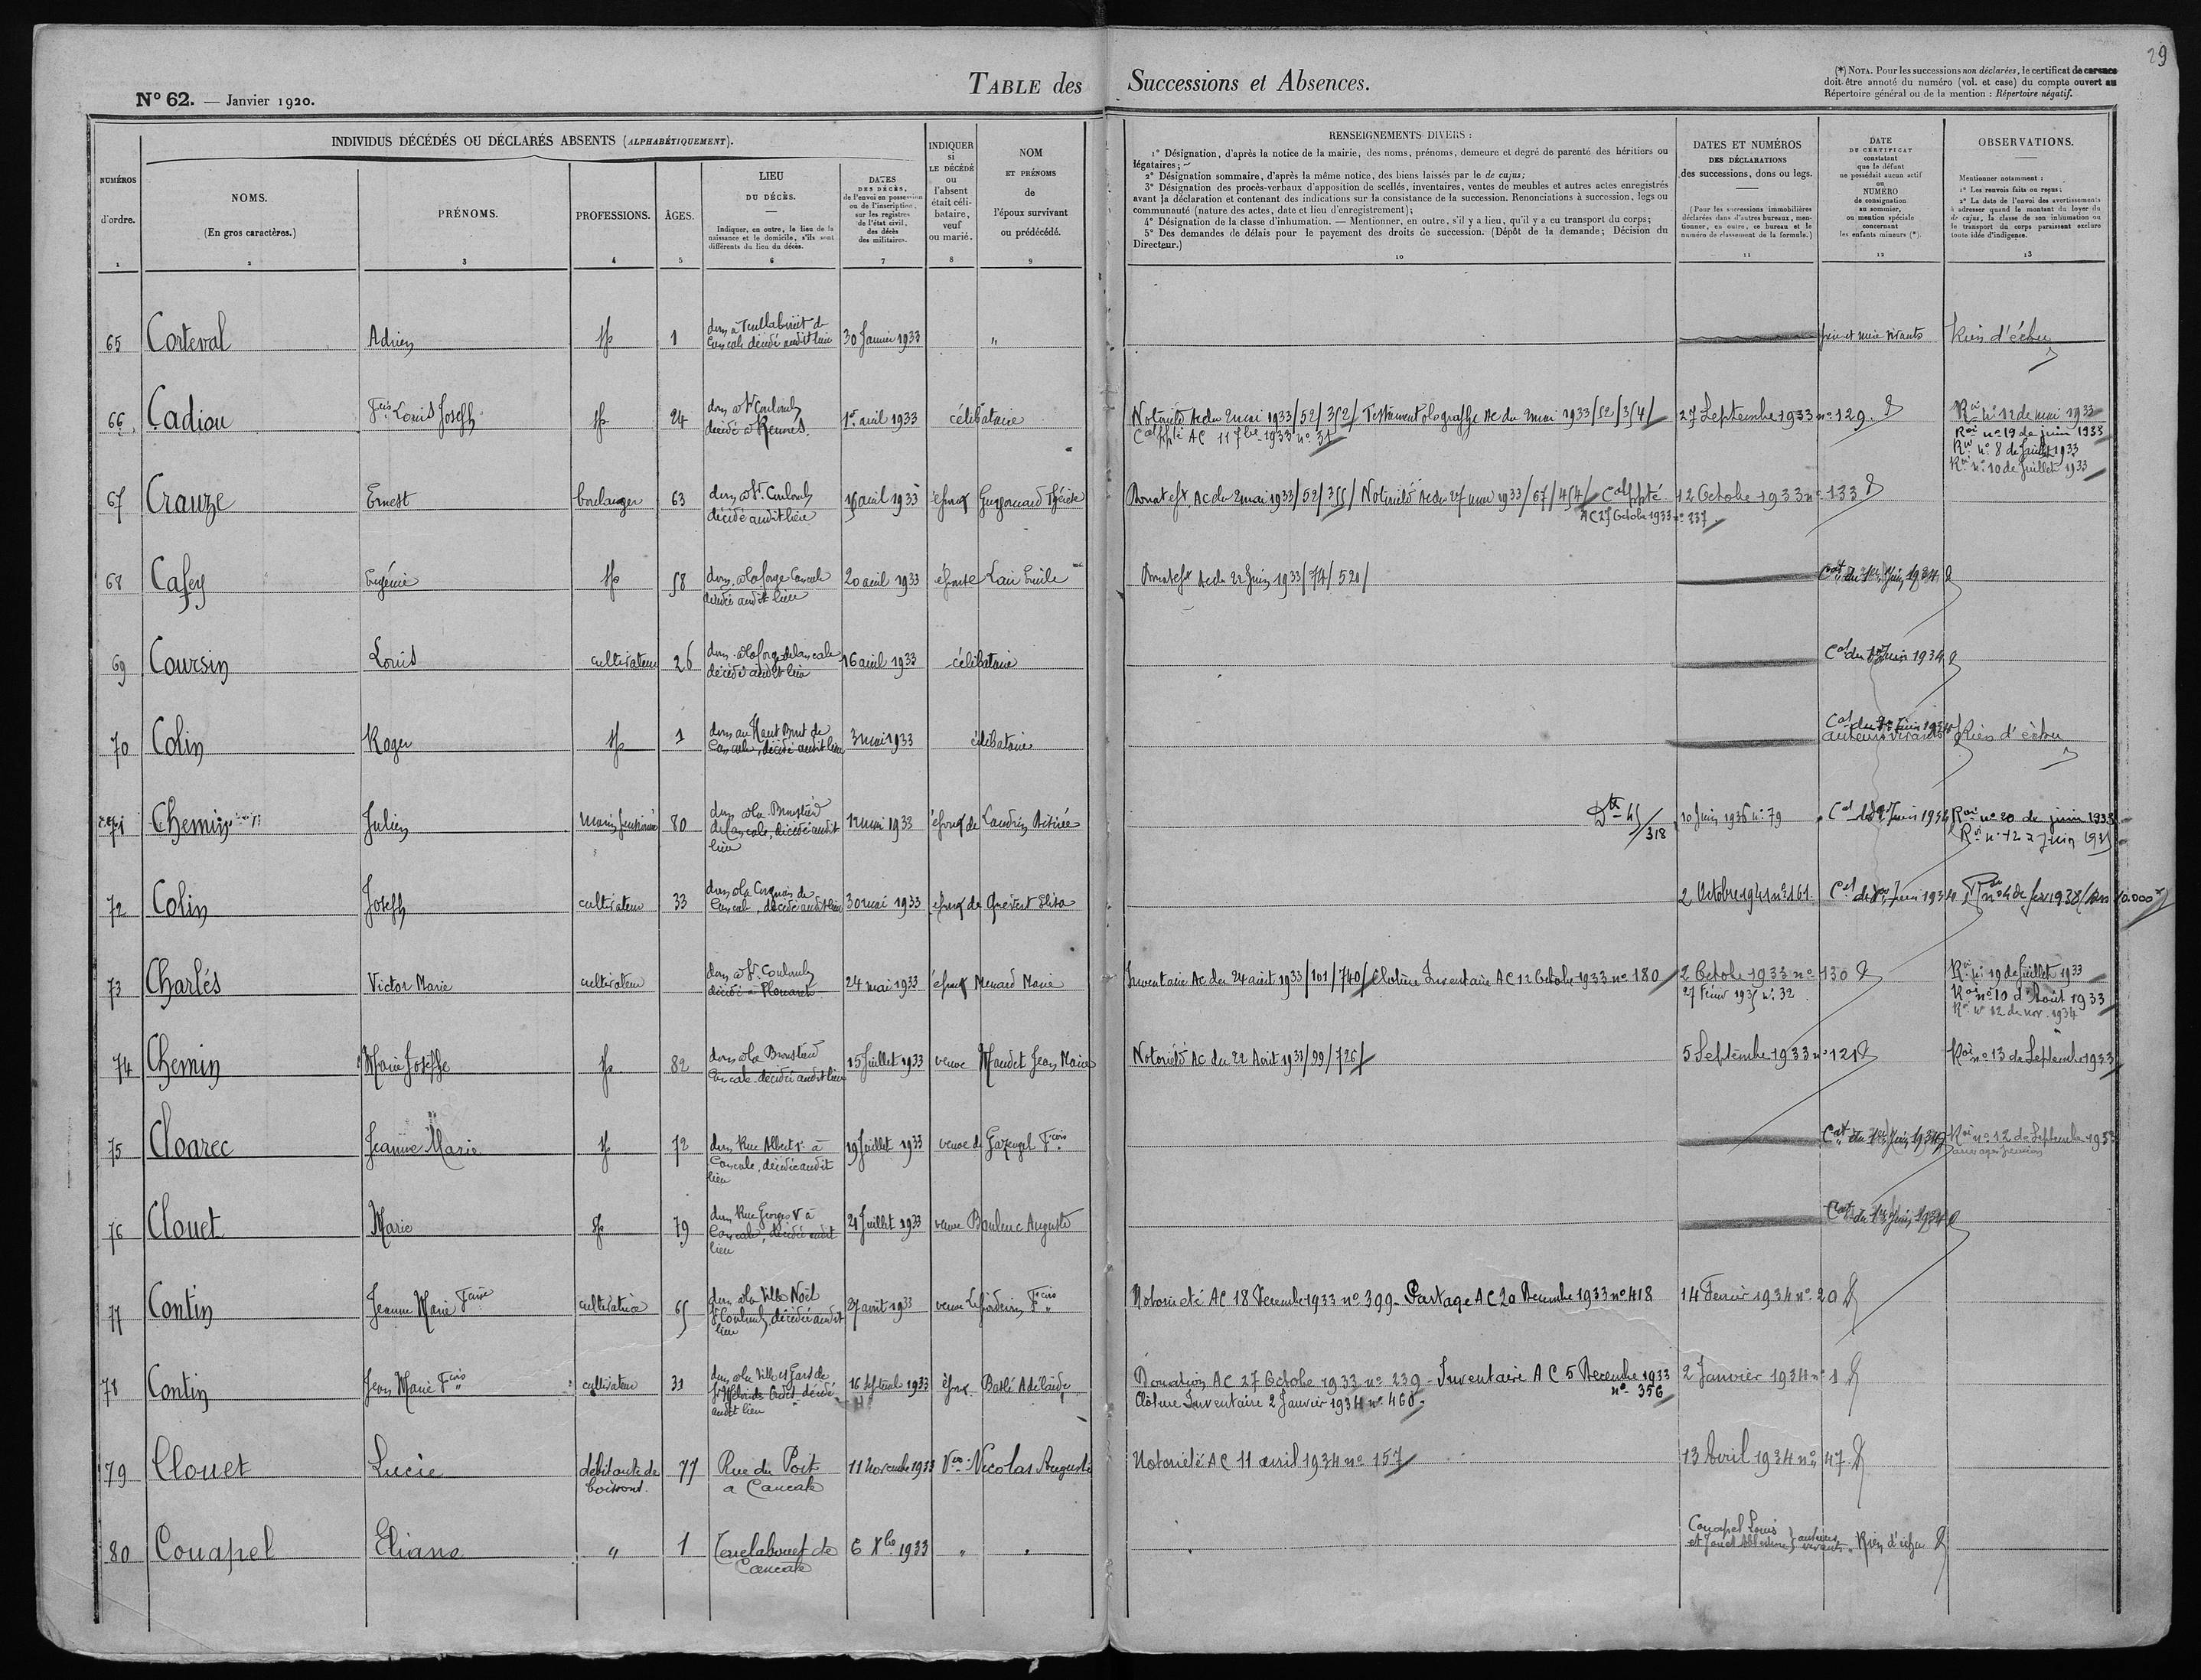 29
N° 62. — Janvier 1920.
TABLE des Successions et Absences.
(*) NOTA. Pour les successions non déclarées, le certificat de carence
doit être annoté du numéro (vol. et case) du compte ouvert au
Répertoire général ou de la mention : Répertoire négatif.
NUMÉROS
d'ordre.
1
INDIVIDUS DÉCÉDÉS OU DÉCLARÉS ABSENTS (ALPHABÉTIQUEMENT).
NOMS.
(En gros caractères.)
2
PRÉNOMS.
3
PROFESSIONS.
4
ÂGES.
5
LIEU
DU DÉCÈS.
Indiquer, en outre, le lieu de la
naissance et le domicile, s'ils sont
différents du lieu du décès.
6
DATES
DES DÉCÈS,
de l'envoi en possession
ou de l'inscription,
sur les registres
de l'état civil,
des décès
des militaires.
7
INDIQUER
si
LE DÉCÉDÉ
ou
l'absent
était céli-
bataire,
veuf
ou marié.
8
NOM
ET PRÉNOMS
de
l'époux survivant
ou prédécédé.
9
RENSEIGNEMENTS DIVERS :
1° Désignation, d'après la notice de la mairie, des noms, prénoms, demeure et degré de parenté des héritiers ou
légataires;
2° Désignation sommaire, d'après la même notice, des biens laissés par le de cujus;
3° Désignation des procès-verbaux d'apposition de scellés, inventaires, ventes de meubles et autres actes enregistrés
avant la déclaration et contenant des indications sur la consistance de la succession. Renonciations à succession, legs ou
communauté (nature des actes, date et lieu d'enregistrement);
4° Désignation de la classe d'inhumation. — Mentionner, en outre, s'il y a lieu, qu'il y a eu transport du corps;
5° Des demandes de délais pour le payement des droits de succession. (Dépôt de la demande; Décision du
Directeur.)
10
DATES ET NUMÉROS
DES DÉCLARATIONS
des successions, dons ou legs.
(Pour les successions immobilières
déclarées dans d'autres bureaux, men-
tionner, en outre, ce bureau et le
numéro de classement de la formule.)
11
DATE
DU CERTIFICAT
constatant
que le défunt
ne possédait aucun actif
ou
NUMÉRO
de consignation
au sommier,
ou mention spéciale
concernant
les enfants mineurs (*).
12
OBSERVATIONS.
Mentionner notamment :
1° Les renvois faits ou reçus;
2° La date de l'envoi des avertissements
à adresser quand le montant du loyer du
de cujus, la classe de son inhumation ou
le transport du corps paraissent exclure
toute idée d'indigence.
13
65 Corteval Adrien sp 1 30 Janvier 1933 " père et mère vivants Rien d'échu
Cancale décédé audit lieu
66 Cadiou Fçois Louis Joseph sp 24 dem à St Coulomb 1er avril 1933 célibataire Notoriété Ac du 2 mai 1933/52/352/ Testament olographe Ac du 2 mai 1933/52/354/ 27 Septembre 1933 n° 129
décédé à Rennes
Roi n° 12 de mai 1933
Roi n° 19 de juin 1933
Roi n° 8 de Juillet 1933
Roi n° 10 de Juillet 1933
67 Crauze Ernest boulanger 63 dem à St Coulomb 16 avril 1933 époux Ac du 2 mai 1933/52/355/ Notoriété Ac du 27 mai 1933/67/454/ 12 Octobre 1933 n° 133
décédé audit lieu
AC 27 Octobre 1933 n° 237
68 Eugénie sp 58 20 avril 1933 épouse Lair Emile Ac du 22 Juin 1933/74/520/ Cat du 1er Juin 1934
décédée audit lieu
69 Coursin Louis cultivateur 26 16 avril 1933 célibataire Cat du 1er Juin 1934
décédé audit lieu
70 Colin Roger sp 1 dem au Haut Bout de 3 mai 1933 célibataire Cat du 1er Juin 1934
Cancale, décédé audit lieu auteurs vivants Rien d'échu
71 Chemin Julien 80 12 mai 1933 époux de Landrin Désirée 318 10 Juin 1936 n° 79 Cat du 1er Juin 1934 Roi n° 20 de juin 1933
de Cancale, décédé audit
lieu
72 Colin Joseph cultivateur 33 30 mai 1933 époux de Quévert Elisa 2 Octobre 1941 n° 161 Cat du 1er Juin 1934 10.000
Cancale, décédé audit lieu
73 Charlès Victor Marie cultivateur dem à St Coulomb 24 mai 1933 époux Menard Marie Inventaire Ac du 24 août 1933/101/740/ Clôture Inventaire AC 12 Octobre 1933 n° 180 2 Octobre 1933 n° 130
décédé à Plouaret 27 Février 1935 n° 32
Roi n° 19 de Juillet 1933
Roi n° 10 d'Août 1933
Roi n° 12 de nov. 1934
74 Chemin Marie Josèphe sp 82 15 Juillet 1933 veuve Maudet Jean Marie Notoriété AC du 22 Août 1933/99/726/ 5 Septembre 1933 n° 121 Roi n° 13 de Septembre 1933
Cancale décédée audit lieu
75 Cloarec Jeanne Marie sp 72 dem Rue Albert 1er à 19 Juillet 1933 veuve de Gazengel Fçois Cat du 1er Juin 1934 Roi n° 12 de Septembre 1933
Cancale, décédée audit
lieu
76 Clouet Marie sp 79 dem Rue Georges V à 21 Juillet 1933 veuve Auguste Cat du 1er Juin 1934
Cancale, décédée audit
lieu
77 Contin Jeanne Marie Fçoise cultivatrice 65 dem à la Ville Noël 27 août 1933 veuve Fçois Notoriété AC 18 Decembre 1933 n° 399 - Partage AC 20 Decembre 1933 n° 418 14 Fevrier 1934 n° 20
St Coulomb, décédée audit
lieu
78 Contin Jean Marie Fçois cultivateur 31 16 septembre 1933 époux Batlé Adélaïde Donation AC 27 Octobre 1933 n° 239 - Inventaire AC 5 Decembre 1933 n° 356 2 Janvier 1934 n° 1
audit lieu Clôture Inventaire 2 Janvier 1934 n° 460
79 Clouet Lucie débitante de 77 Rue du Port 11 novembre 1933 Vve Nicolas Auguste Notoriété AC 11 avril 1934 n° 157 13 Avril 1934 n° 47
boissons. à Cancale
80 Couapel Eliane " 1 6 Xbre 1933 " " Couapel Louis
Cancale auteurs vivants " Rien d'échu